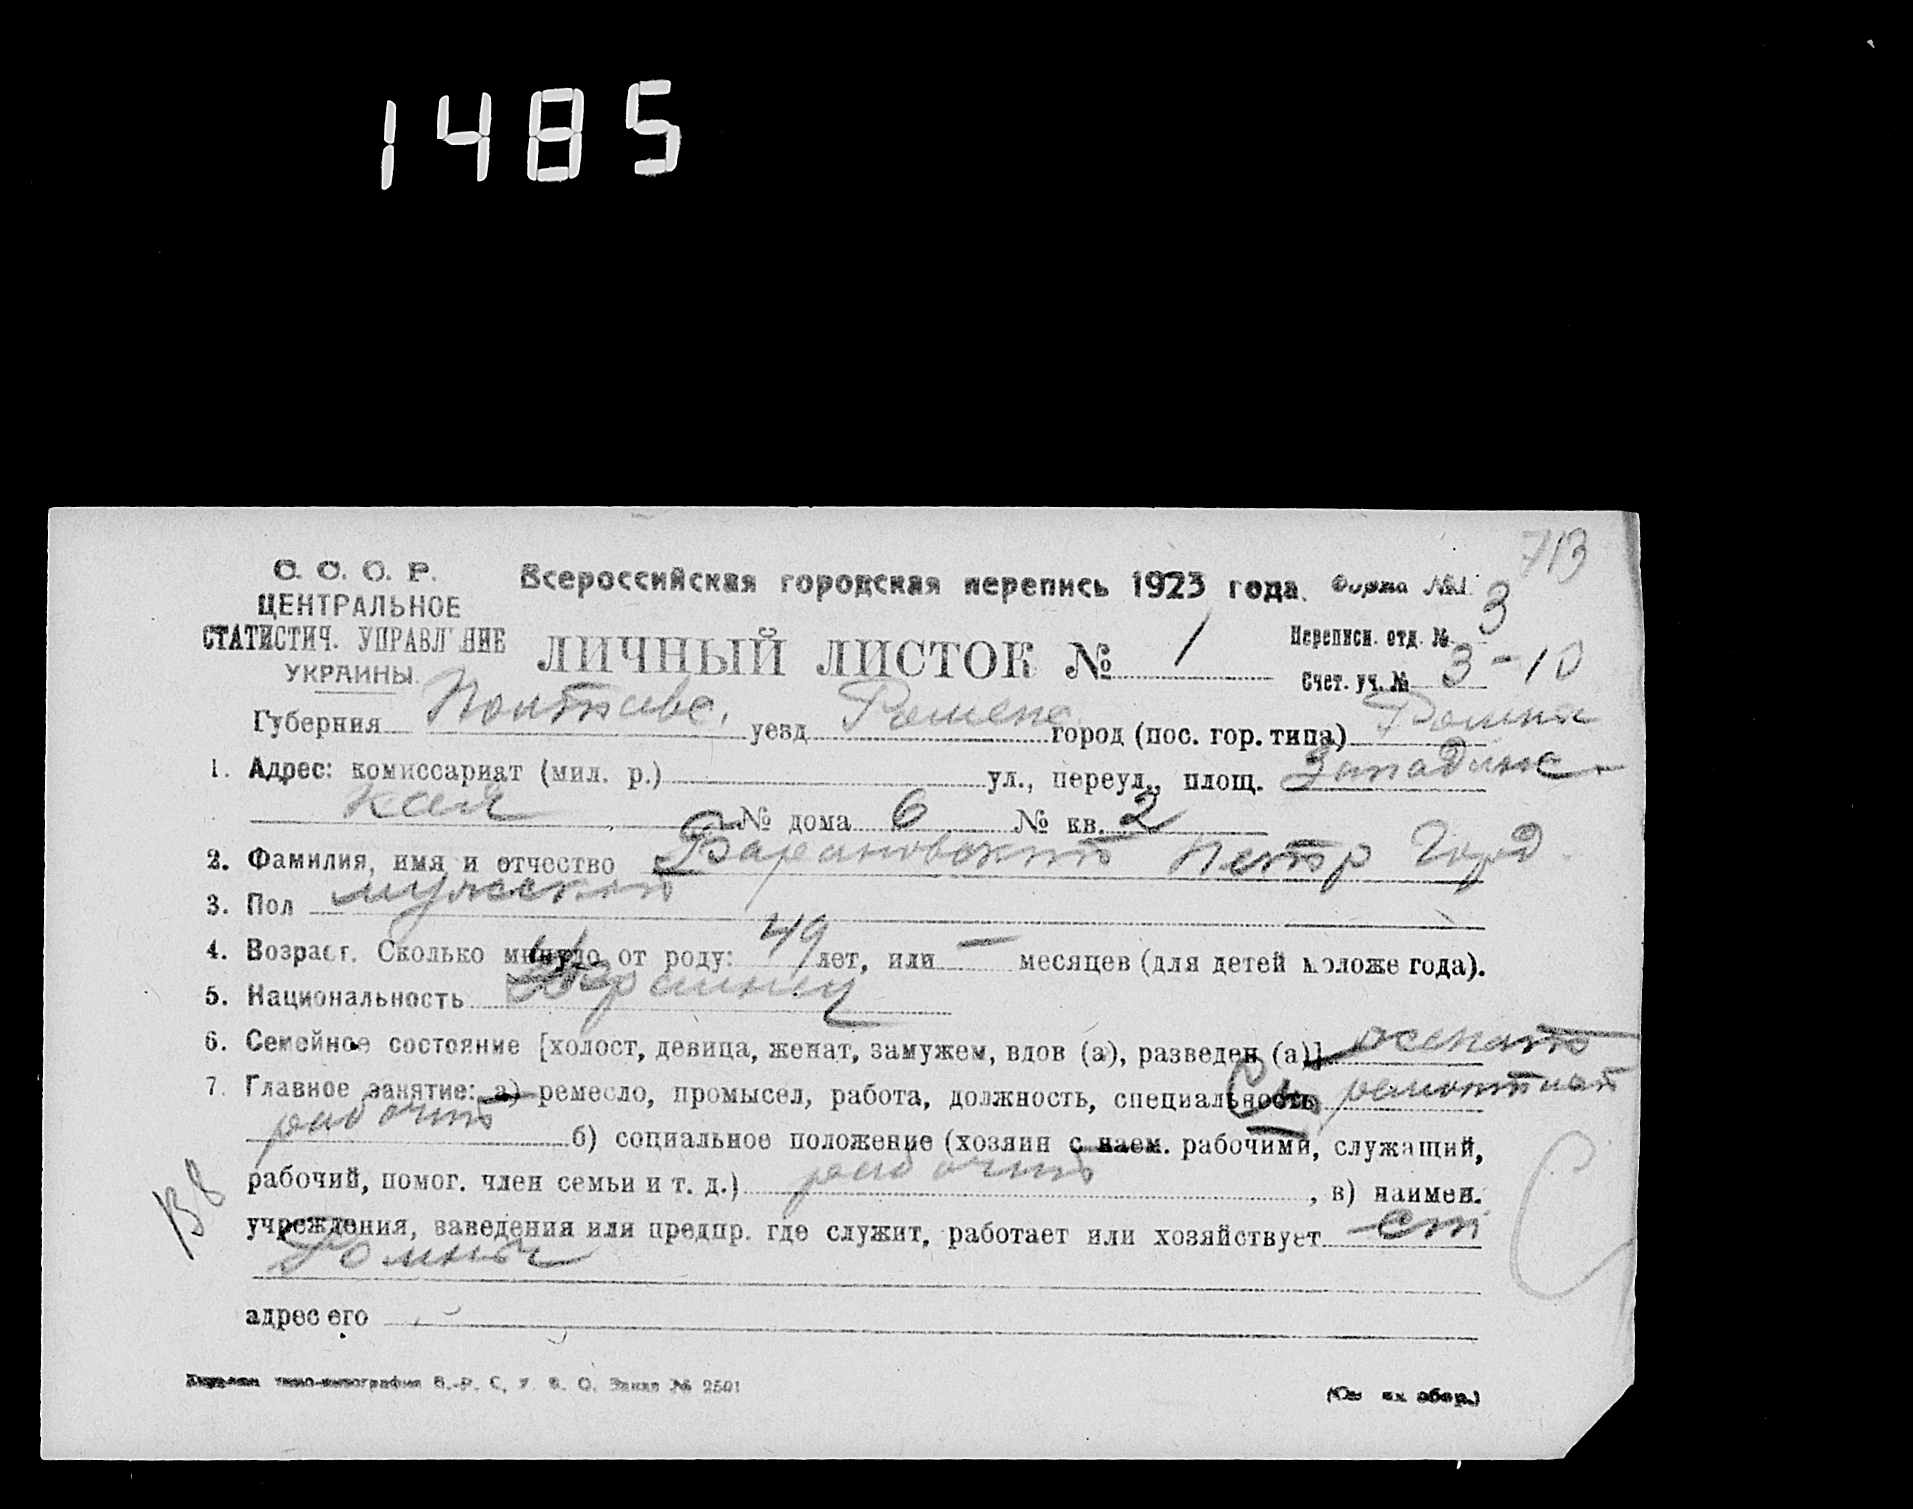 1485
713
С. С. С. Р.
ЦЕНТРАЛЬНОЕ
СТАТИСТИЧ. УПРАВЛЕНИЕ
УКРАИНЫ.
Всероссийская городская перепись 1923 года. Форма №1.
ЛИЧНЫЙ ЛИСТОК № 1
Переписн. отд. № 3
Счет. уч. № 3-10
Губерния Полтавс. уезд Роменс город (пос. гор. типа) Ромны
1. Адрес: комиссариат (мил. р.) ул., переул., площ. Западинс-
кая № дома 6 № кв. 2
2. Фамилия, имя и отчество Барановский Петр
3. Пол мужской
4. Возраст. Сколько минуло от роду: 49 лет, или — месяцев (для детей моложе года).
5. Национальность Украинец
6. Семейное состояние [холост, девица, женат, замужем, вдов (а), разведен (а)] женат
7. Главное занятие: а) ремесло, промысел, работа, должность, специальность ремонтный
рабочий б) социальное положение (хозяин с наем. рабочими, служащий,
рабочий, помог. член семьи и т. д.) рабочий, в) наимен.
учреждения, заведения или предпр. где служит, работает или хозяйствует ст
Ромны
адрес его
В8
С
Заказ № 2501
(См. на обор.)